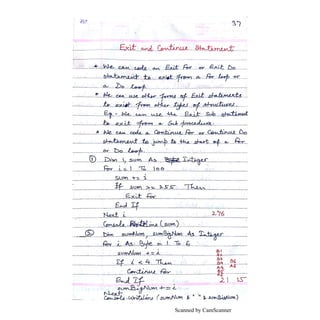 37
Exit and Continue Statement
* We can code an Exit For or Exit Do
statement to exit from a For loop or
a Do loop.
* We can use other forms of Exit statements
to exit from other types of structures.
Eg. We can use the Exit Sub statement
to exit from a Sub procedure.
* We can code a Continue For or Continue Do
statement to jump to the start of a For
or Do loop.
① Dim i, sum As Integer
For i = 1 To 100
sum += i
If sum >= 255 Then
Exit For
End If
Next i 276
Console.WriteLine (sum)
② Dim sumNum, sumBigNum As Integer
For i As Byte = 1 To 6
sumNum += i
If i < 4 Then
Continue For
End If 21 15
sumBigNum += i
Next
Console.WriteLine (sumNum & " " & sumBigNum)
Scanned by CamScanner